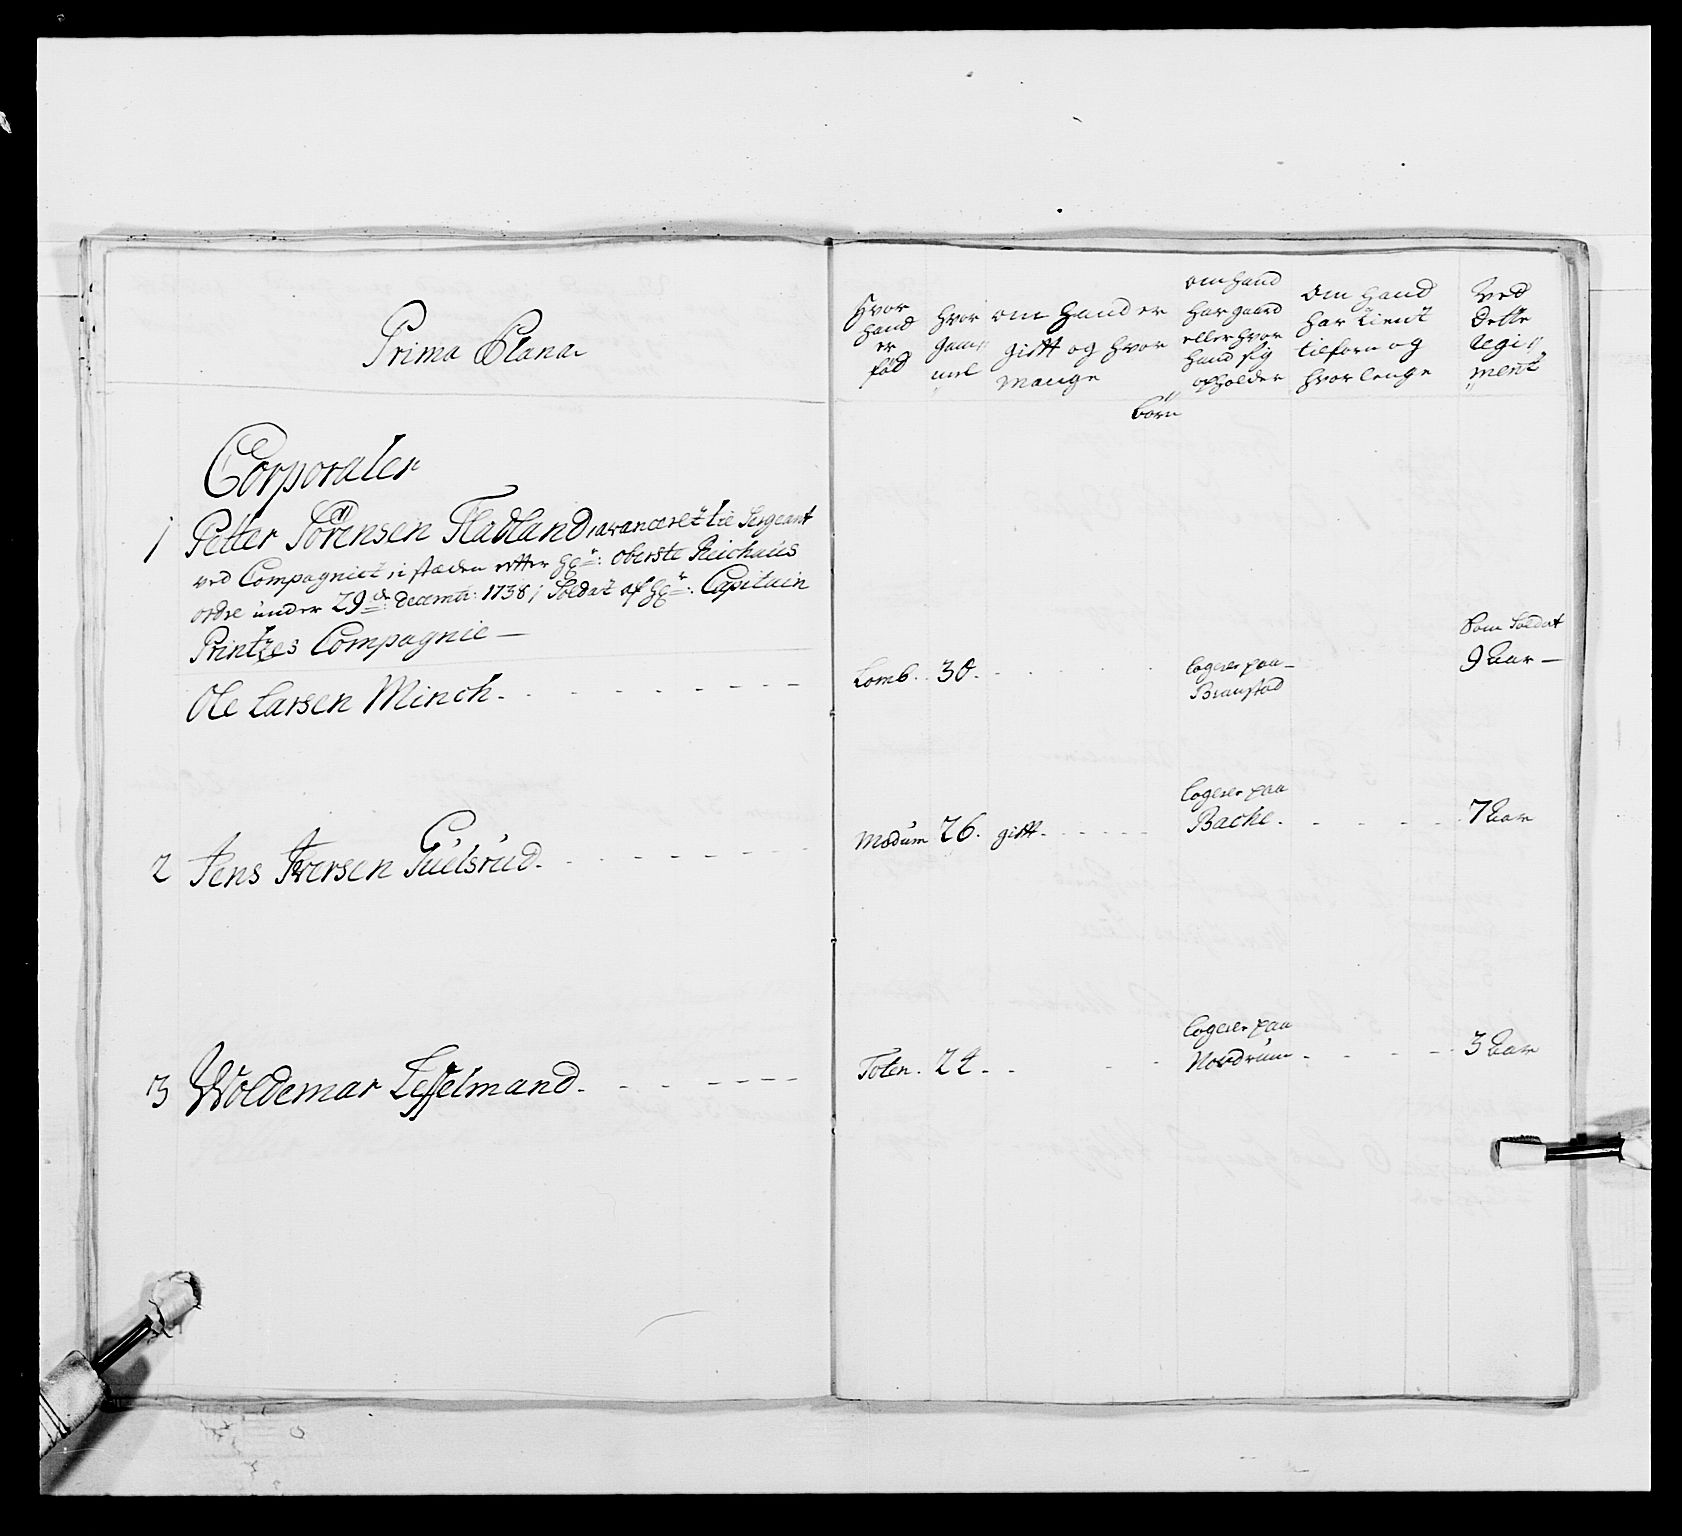 Prima Plana
Corporaler
1 Petter Sörensen Fladland, avanceret til Sergeant
ved Compagniet, i stæden etter Hr: Oberste Reichaus
ordre under 29de: decemb: 1738; Soldat af Hr: Capitain
Printzes Compagnie —
Ole Larsen Minch.
2 Jens Iversen Guulsrud.
3 Woldemar Lesselmand.
Hvor
hand
er
fød
hvor
gam„
mel
om hand er
gift og hvor
mange
börn
om hand
har gaard
eller hvor
hand sig
opholder
om hand
har tient
tilforn og
hvor lenge
Ved
dette
Regi„
„ment
Lomb. 30.
Logerer paa
Branstad
Som Soldat
9 Aar —
Modum 26. gift.
Logerer paa
Bache.
7 Aar
Toten. 24.
Logerer paa
Nordrum
3 Aar